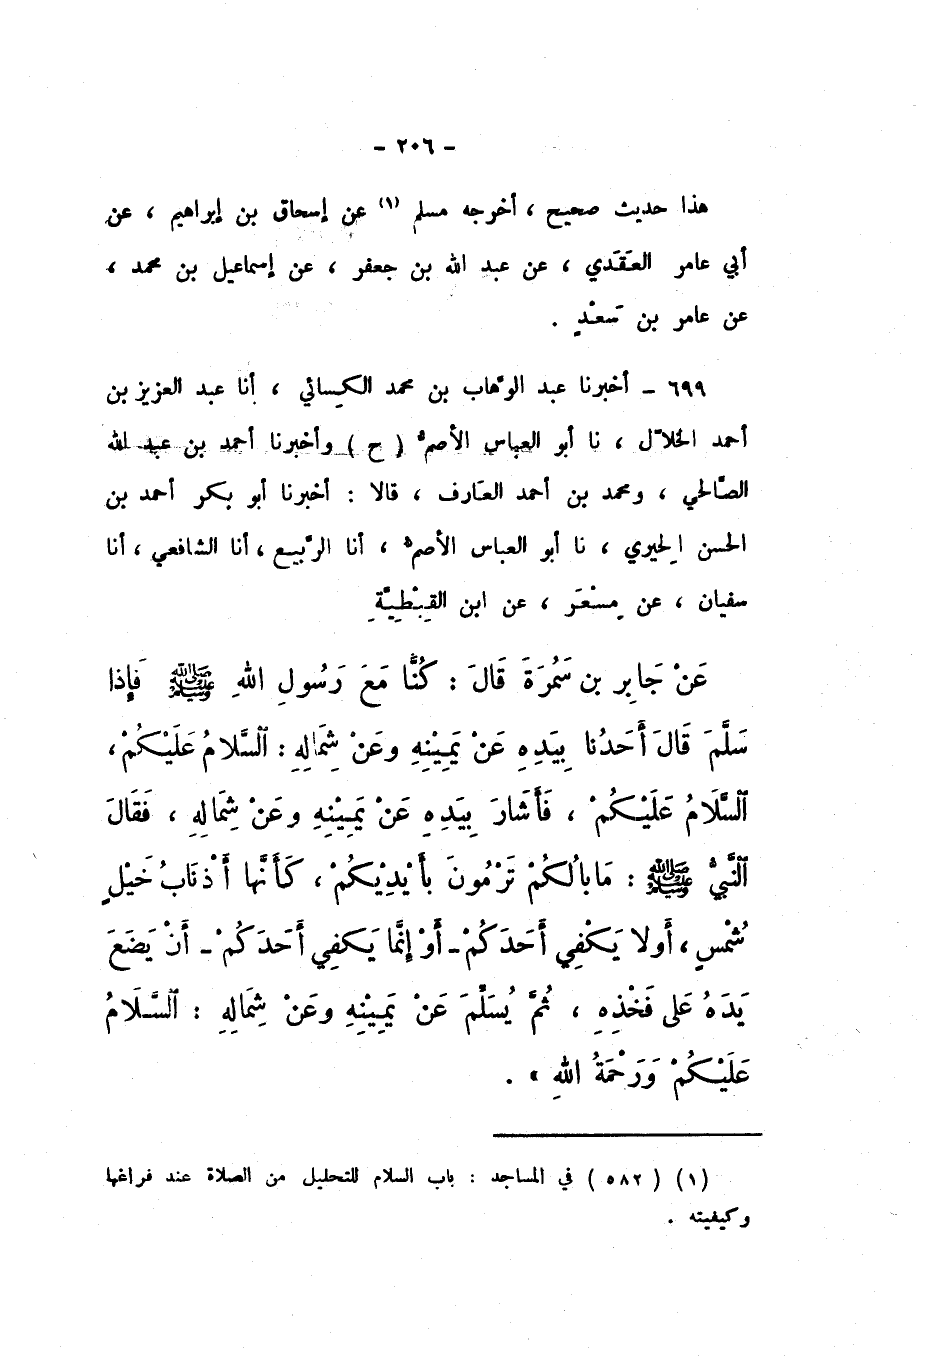 - ٢٠٦ -
هذا حديث صحيح ، أخرجه مسلم (١) عن إسحاق بن إبراهيم ، عن
أبي عامر العَقَدي ، عن عبد الله بن جعفر ، عن إسماعيل بن محمد ،
عن عامر بن سَعْدٍ .
٦٩٩ - أخبرنا عبد الوهّاب بن محمد الكِسائي ، أنا عبد العزيز بن
أحمد الخلاّل ، نا أبو العباس الأصمّ ( ح ) وأخبرنا أحمد بن عبد لله
الصّالحي ، ومحمد بن أحمد العَارف ، قالا : أخبرنا أبو بكر أحمد بن
الحسن الحِيري ، نا أبو العباس الأصمّ ، أنا الرّبيع ، أنا الشافعي ، أنا
سفيان ، عن مِسْعَر ، عن ابن القِبْطِيَّةِ
عَنْ جَابِر بن سَمُرَةَ قَالَ : كُنَّا مَعَ رَسُولِ اللهِ ﷺ فَإذا
سَلَّمَ قَالَ أَحَدُنا بِيَدِهِ عَنْ يَمِيْنِهِ وعَنْ شِمَالِهِ : السَّلامُ عَلَيْكُمْ ،
السَّلَامُ عَلَيْكُمْ ، فَأَشَارَ بِيَدِهِ عَنْ يَمِيْنِهِ وعَنْ شِمَالِهِ ، فَقَالَ
النَّبيُّ ﷺ : مَا بالُكُمْ تَرْمُونَ بأَيْدِيْكُمْ ، كَأَنَّها أَذْنَابُ خَيْلٍ
شُمْسٍ ، أَولا يَكْفِي أَحَدَكُمْ - أَوْ إنَّما يَكفِي أَحَدَكُمْ - أَنْ يَضَعَ
يَدَهُ عَلى فَخْذِهِ ، ثُمَّ يُسَلِّمَ عَنْ يَمِيْنِهِ وعَنْ شِمَالِهِ : السَّلَامُ
عَلَيْكُمْ وَرَحْمَةُ اللهِ » .
(١) ( ٥٨٢ ) في المساجد : باب السلام للتحليل من الصلاة عند فراغها
وكيفيته .